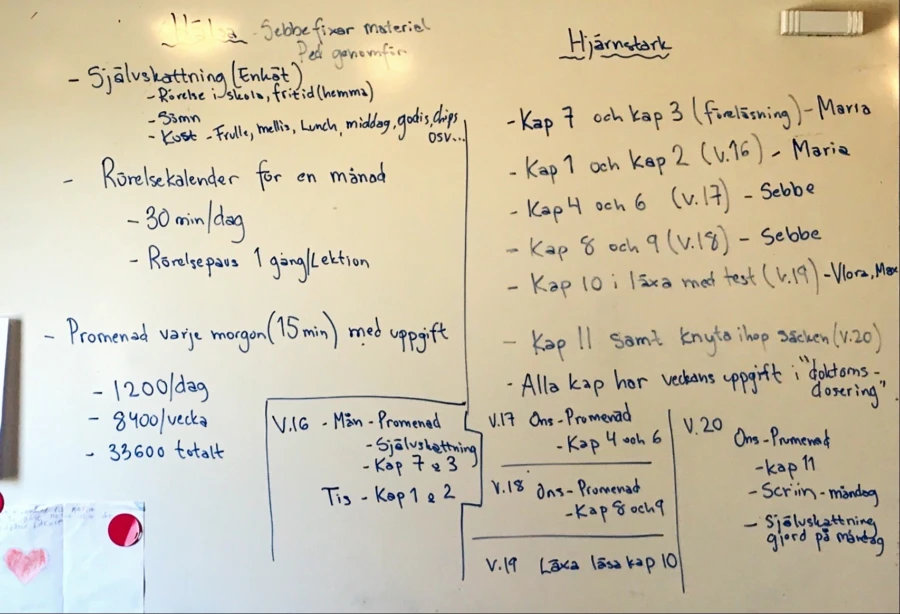 Hälsa - Sebbe fixar material
Ped genomför
- Självskattning (Enkät)
- Rörelse i skola, fritid (hemma)
- Sömn
- Kost - Frulle, mellis, Lunch, middag, godis, chips
osv...
- Rörelsekalender för en månad
- 30 min/dag
- Rörelsepaus 1 gång/Lektion
- Promenad varje morgon (15 min) med uppgift
- 1200/dag
- 8400/vecka
- 33600 totalt
Hjärnstark
- Kap 7 och kap 3 (föreläsning) - Maria
- Kap 1 och Kap 2 (v.16) - Maria
- Kap 4 och 6 (v.17) - Sebbe
- Kap 8 och 9 (v.18) - Sebbe
- Kap 10 i läxa med test (v.19) - Vlora, Max
- Kap 11 samt knyta ihop säcken (v.20)
- Alla kap har veckans uppgift i "doktorns-
dosering"
V.16 - Mån - Promenad
- Självskattning
- Kap 7 & 3
Tis - Kap 1 & 2
V.17 Ons - Promenad
- Kap 4 och 6
V.18 Ons - Promenad
- Kap 8 och 9
V.19 Läxa läsa kap 10
V.20
Ons - Promenad
- kap 11
- Scriin - måndag
- Självskattning
gjord på måndag